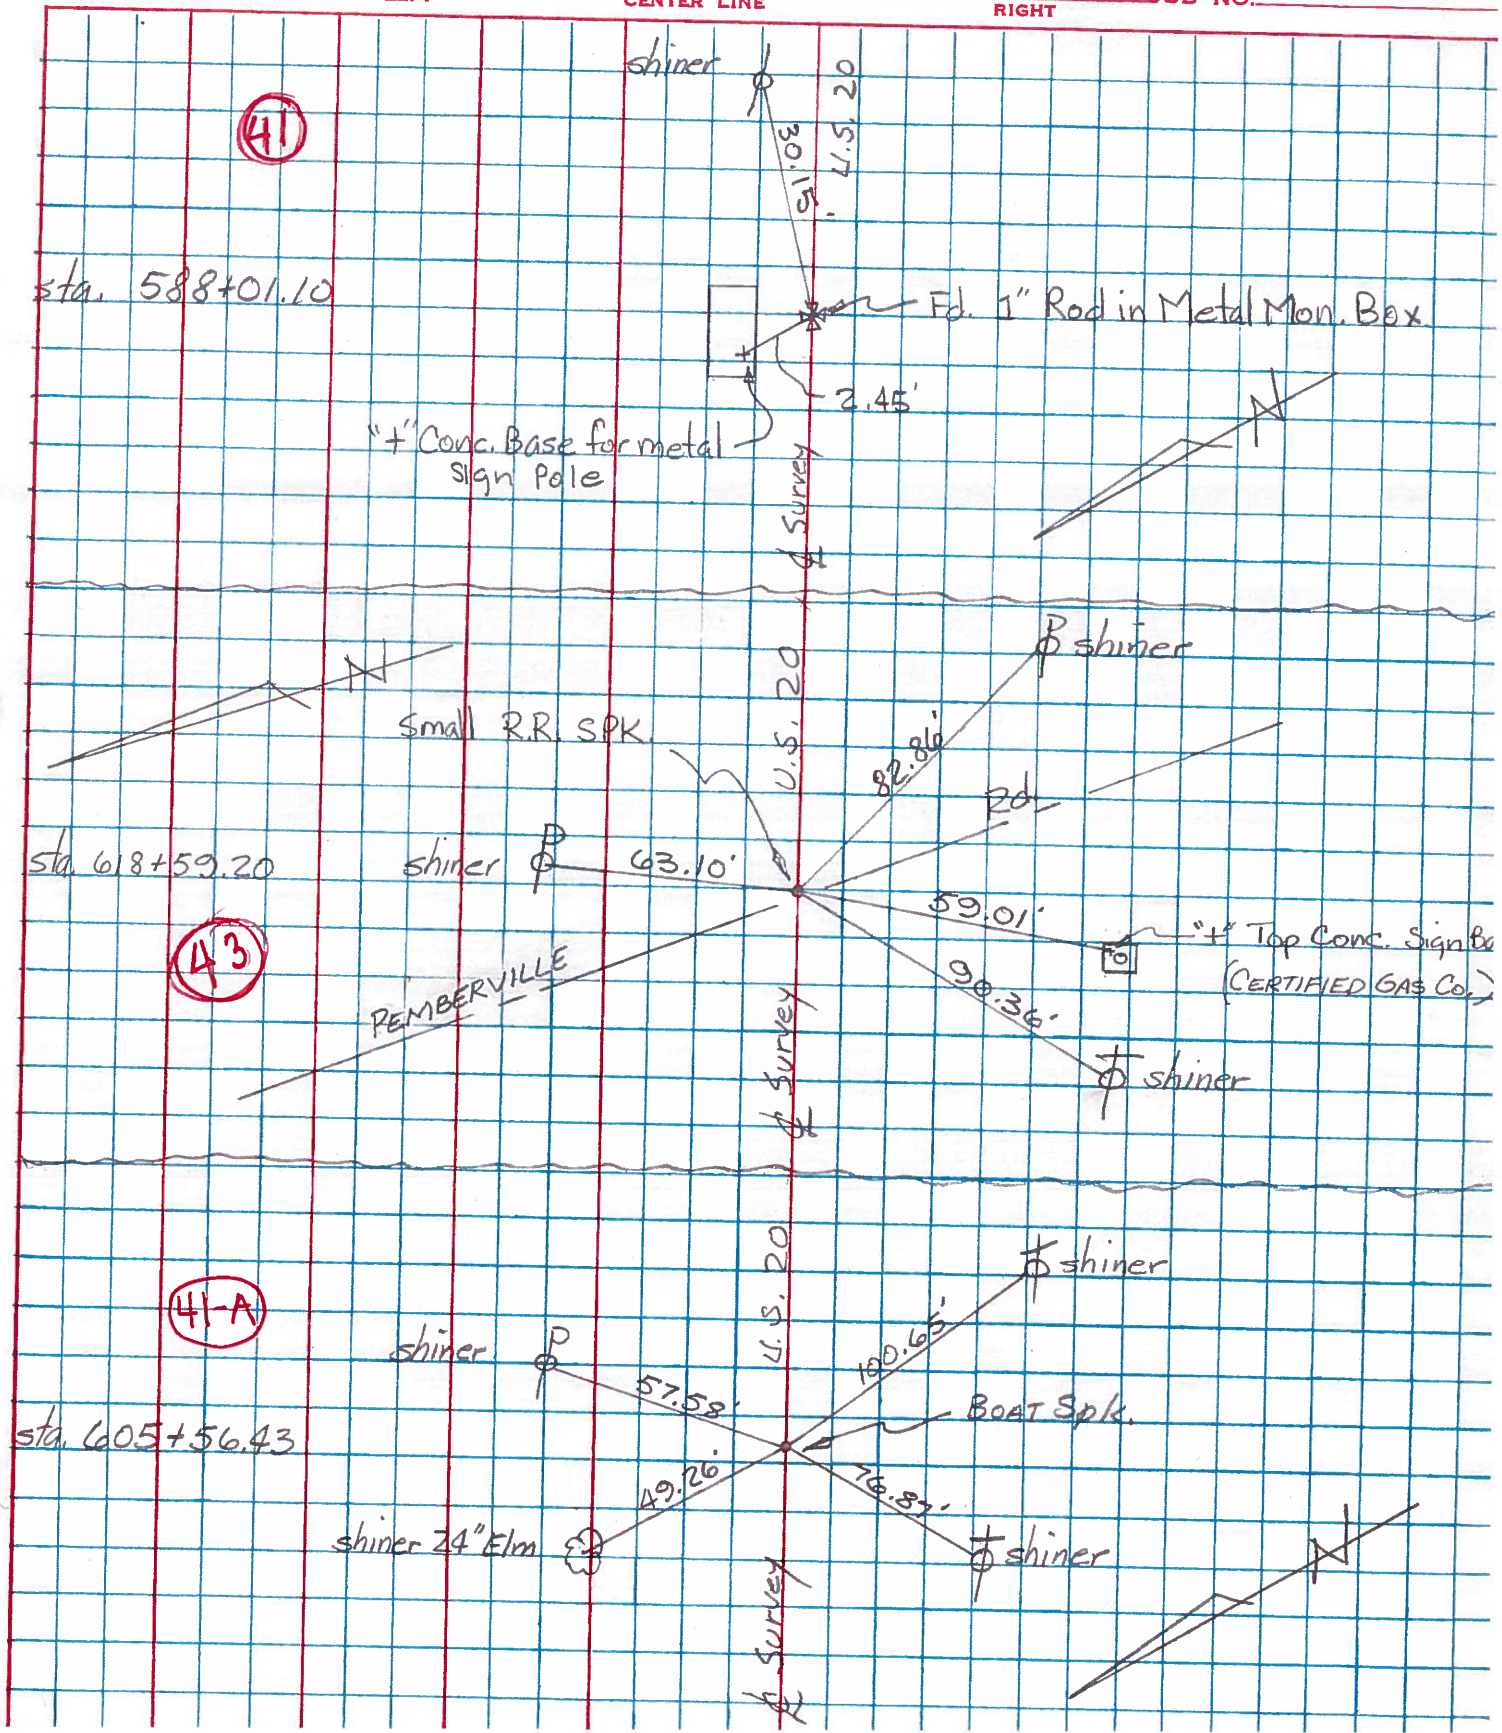 CENTER LINE
RIGHT
shiner
U.S. 20
30.15'
41
sta. 588+01.10
Fd. 1" Rod in Metal Mon. Box
2.45'
"+" Conc. Base for metal
sign Pole
N
℄ Survey
P shiner
N
small R.R. SPK.
U.S. 20
82.86'
Rd.
sta. 618+59.20
shiner P
63.10'
59.01'
"+" Top Conc. Sign Ba
(CERTIFIED GAS Co.)
43
PEMBERVILLE
90.36'
shiner
℄ Survey
U.S. 20
shiner
41-A
shiner P
100.65'
57.58'
BOAT Spk.
sta. 605+56.43
49.26'
76.87'
shiner 24" Elm
shiner
N
℄ Survey